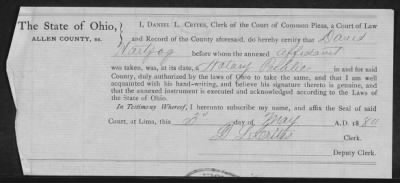 The State of Ohio,
ALLEN COUNTY, ss.
I, DANIEL L. CRITES, Clerk of the Court of Common Pleas, a Court of Law
and Record of the County aforesaid, do hereby certify that David
Hartzog before whom the annexed affidavit
was taken, was, at its date, a Notary Public in and for said
County, duly authorized by the laws of Ohio to take the same, and that I am well
acquainted with his hand-writing, and believe his signature thereto is genuine, and
that the annexed instrument is executed and acknowledged according to the Laws
of the State of Ohio.
In Testimony Whereof, I hereunto subscribe my name, and affix the Seal of said
Court, at Lima, this day of May A.D. 188
D. L. Crites Clerk.
Deputy Clerk.